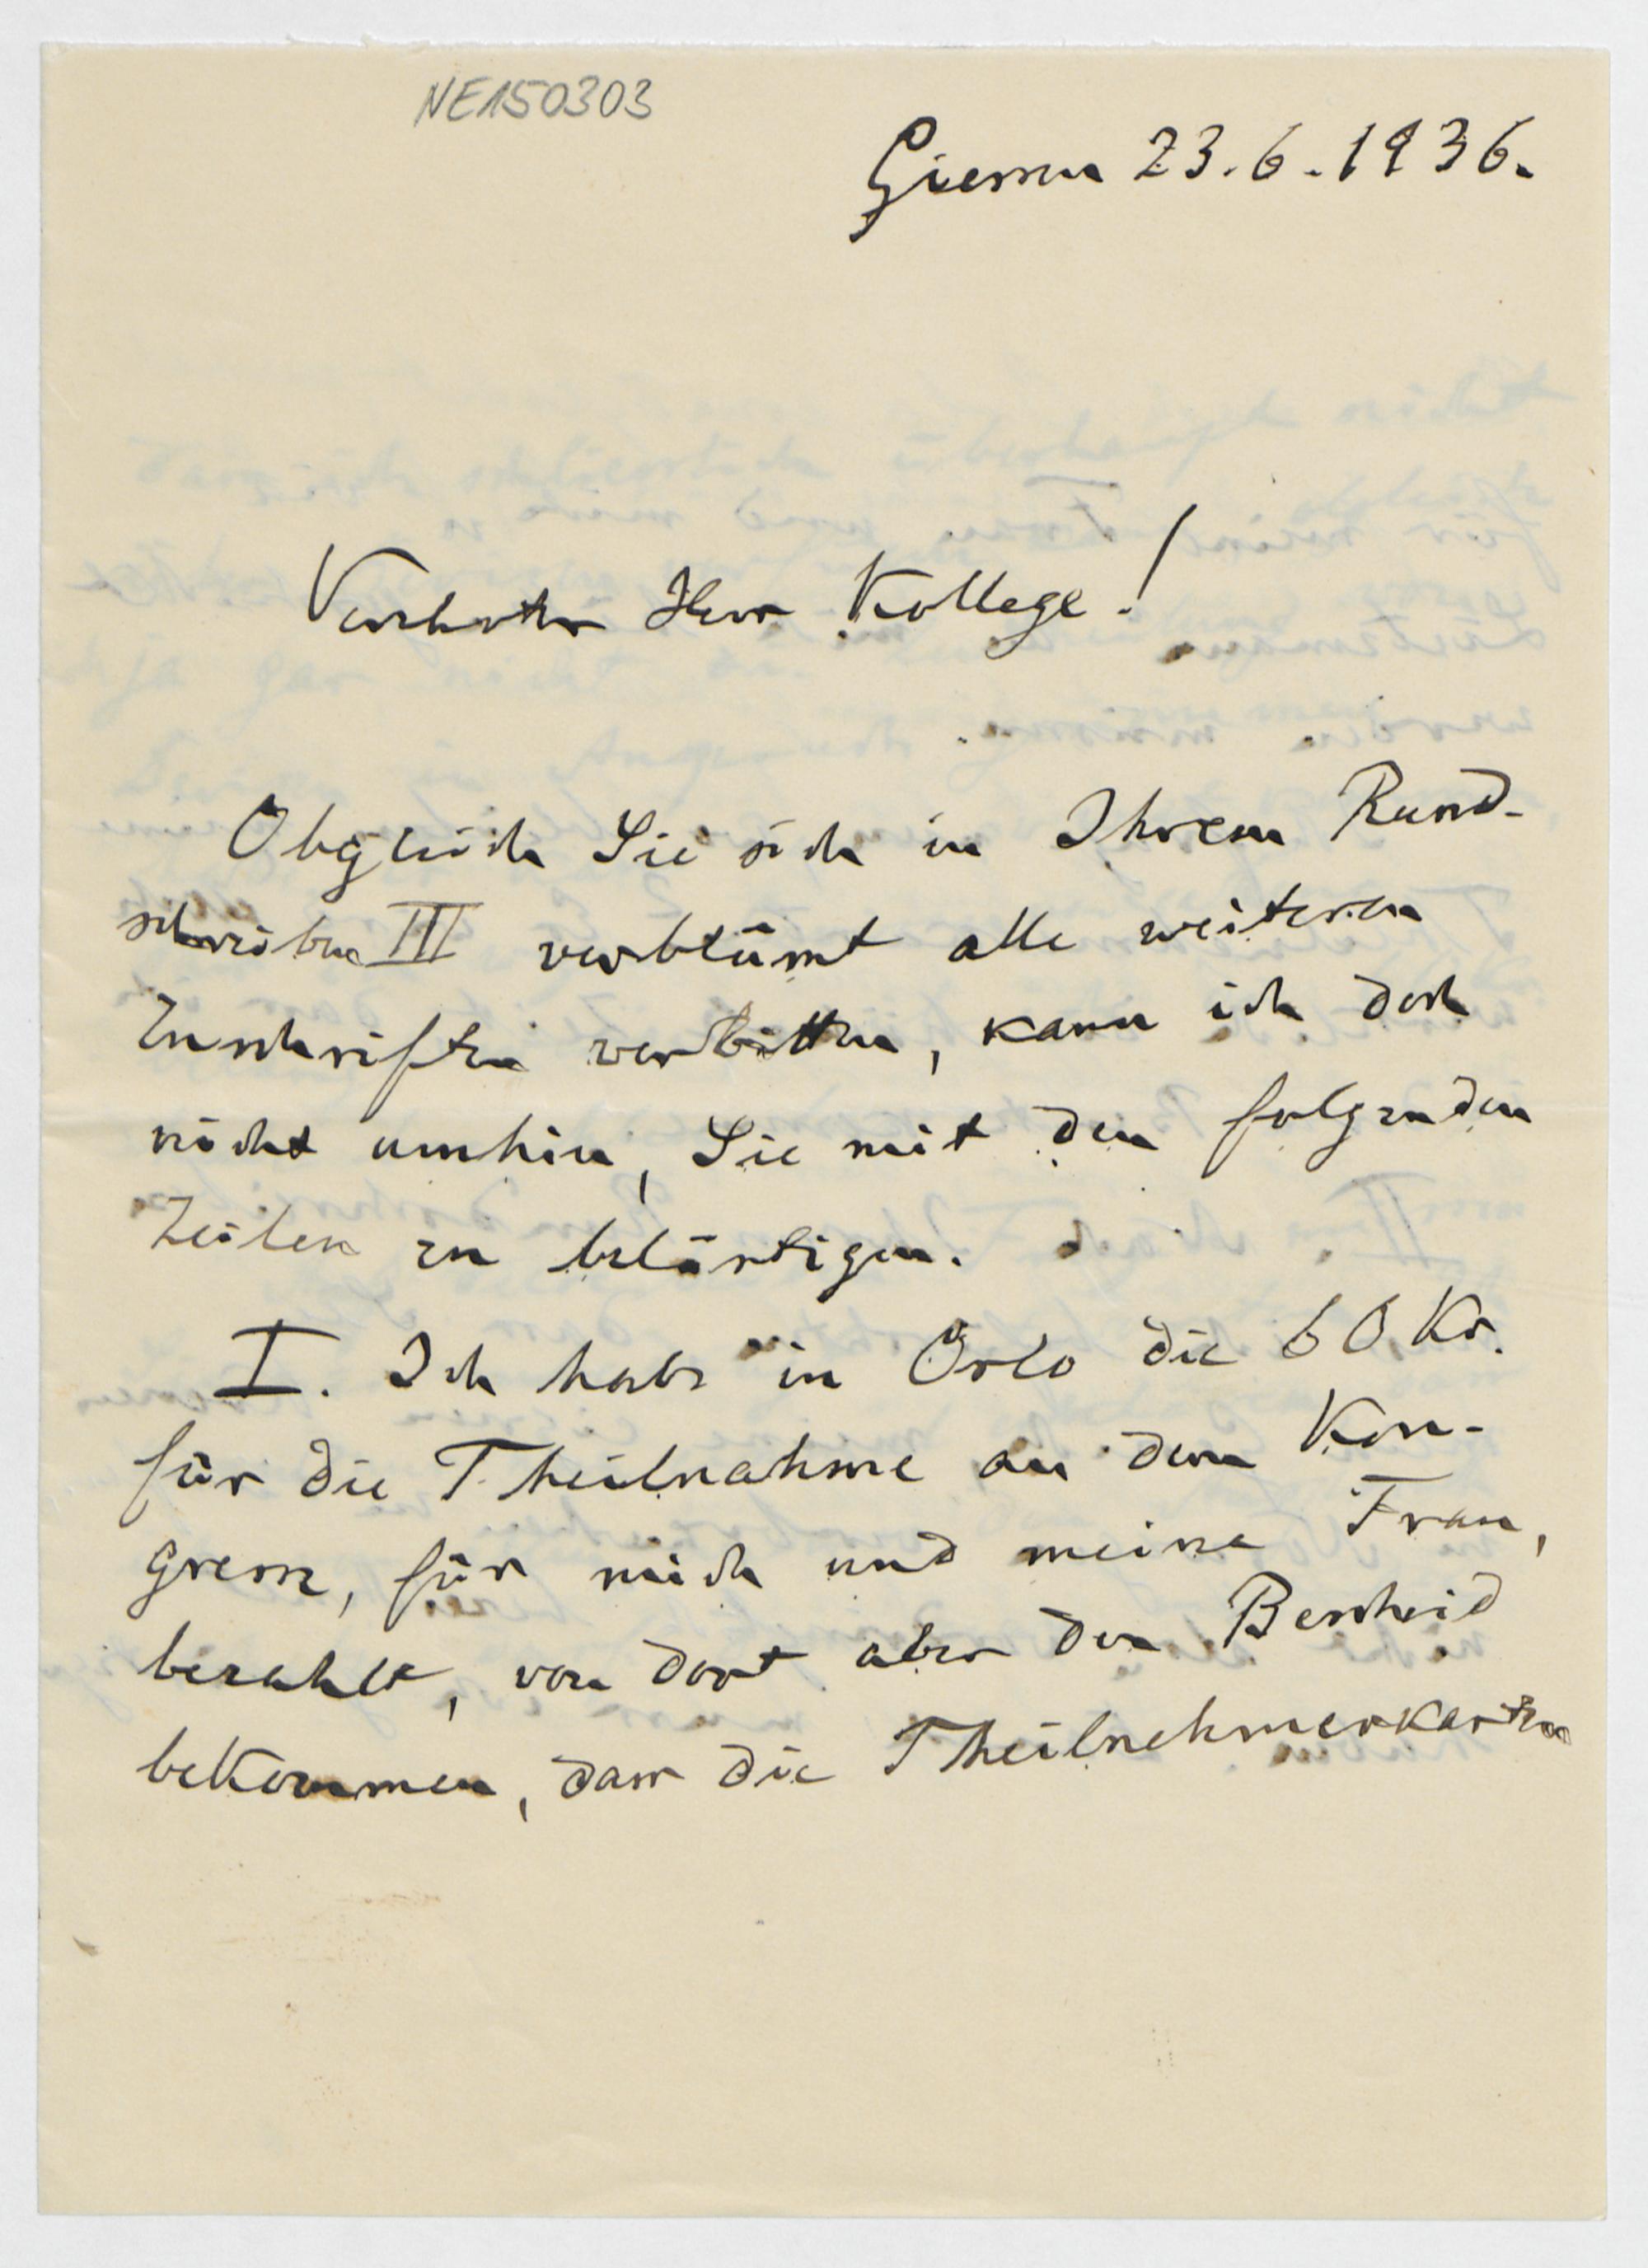 NE150303
Giessen 23.6.1936.
Verehrter Herr Kollege!
Obgleich Sie sich in Ihrem Rund-
schreiben III verblümt alle weiteren
Zuschriften verbitten, kann ich doch
nicht umhin, Sie mit den folgenden
Zeilen zu belästigen.
I. Ich habe in Oslo die 60 Kr.
für die Theilnahme an dem Kon-
gress, für mich und meine Frau,
bezahlt, von dort aber den Bescheid
bekommen, dass die Theilnehmerkarten